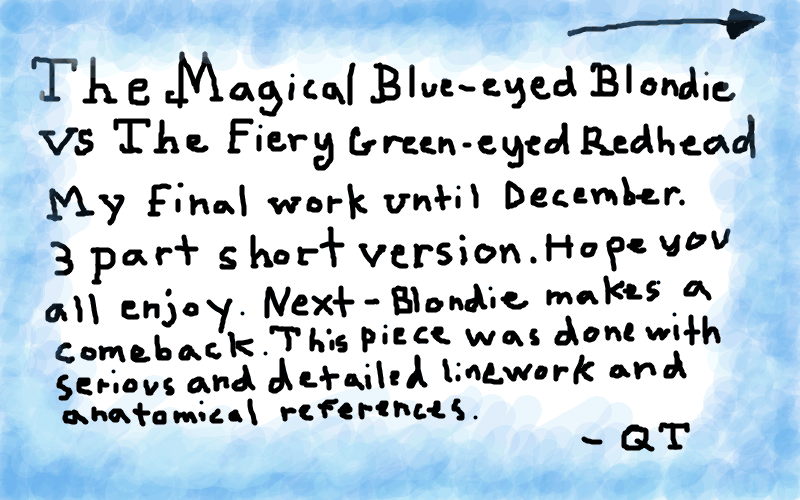 The Magical Blue-eyed Blondie
vs The Fiery Green-eyed Redhead
My final work until December.
3 part short version. Hope you
all enjoy. Next - Blondie makes a
comeback. This piece was done with
serious and detailed linework and
anatomical references.
- QT